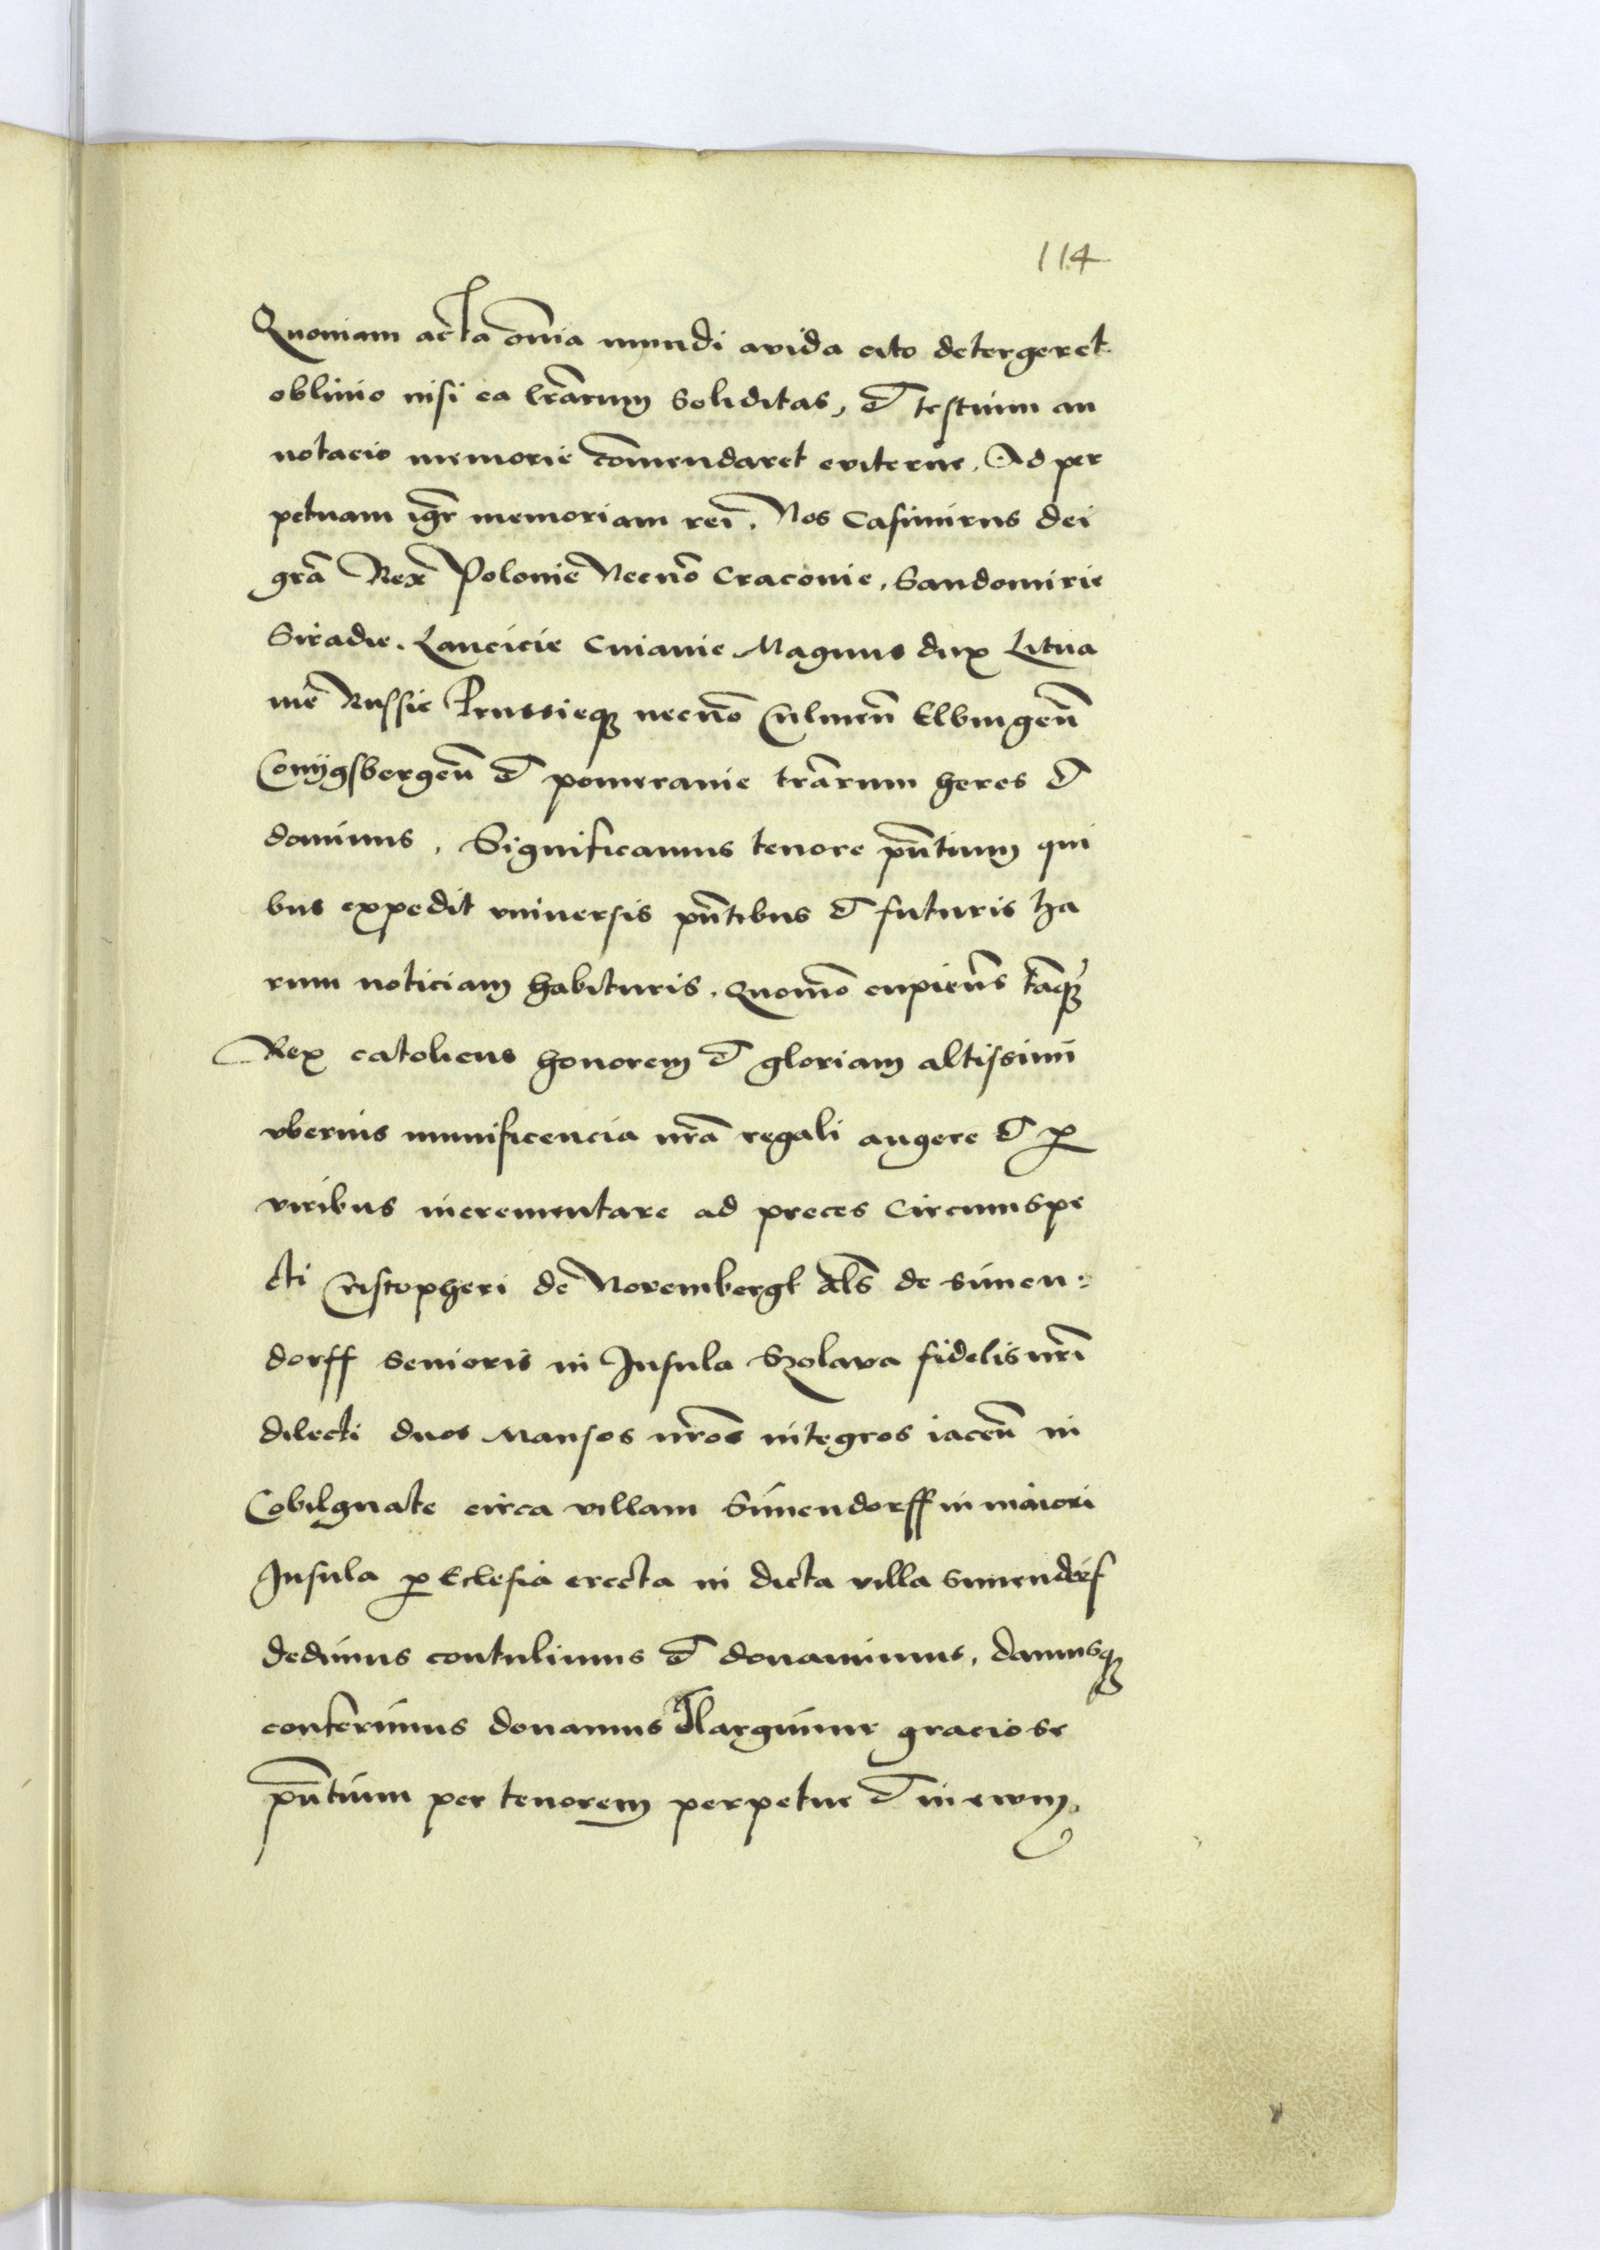 114
Quoniam acta om̄ia mundi avida cito detergeret
oblivio nisi ea lr̄arum soliditas, et testium an
notacio memorie com̄endaret eviterne. Ad per
petuam igr̄ memoriam rei. Nos Casimirus dei
grā Rex Polonie Necnō Cracovie, Sandomirie
Siradie. Lancicie Cuiavie Magnus dux Litua
nie Russie Prussieq3 necnō Culmeñ Elbingeñ
Conÿgsbergeñ et pomeranie tr̄arum heres et
dominus. Significamus tenore pñtium qui
bus expedit vniversis pñtibus et futuris ha
rum noticiam habituris. Quomō cupieñs tāq3
Rex catolicus honorem et gloriam altissimi
vberius munificencia nr̄a regali augere et p
viribus incrementare ad preces Circumspe
cti Cristopheri de Norembergk als̄ de Simen=
dorff senioris in Insula Szolava fidelis nr̄i
dilecti duos Mansos nr̄os integros iaceñ in
Cobilgnate circa villam Simendorff in maiori
Insula p Eclesia erecta in dicta villa Simendorf
dedimus contulimus et donavimus, damusq3
conferimus donamus et largimur graciose
pñtium per tenorem perpetue et in ewm